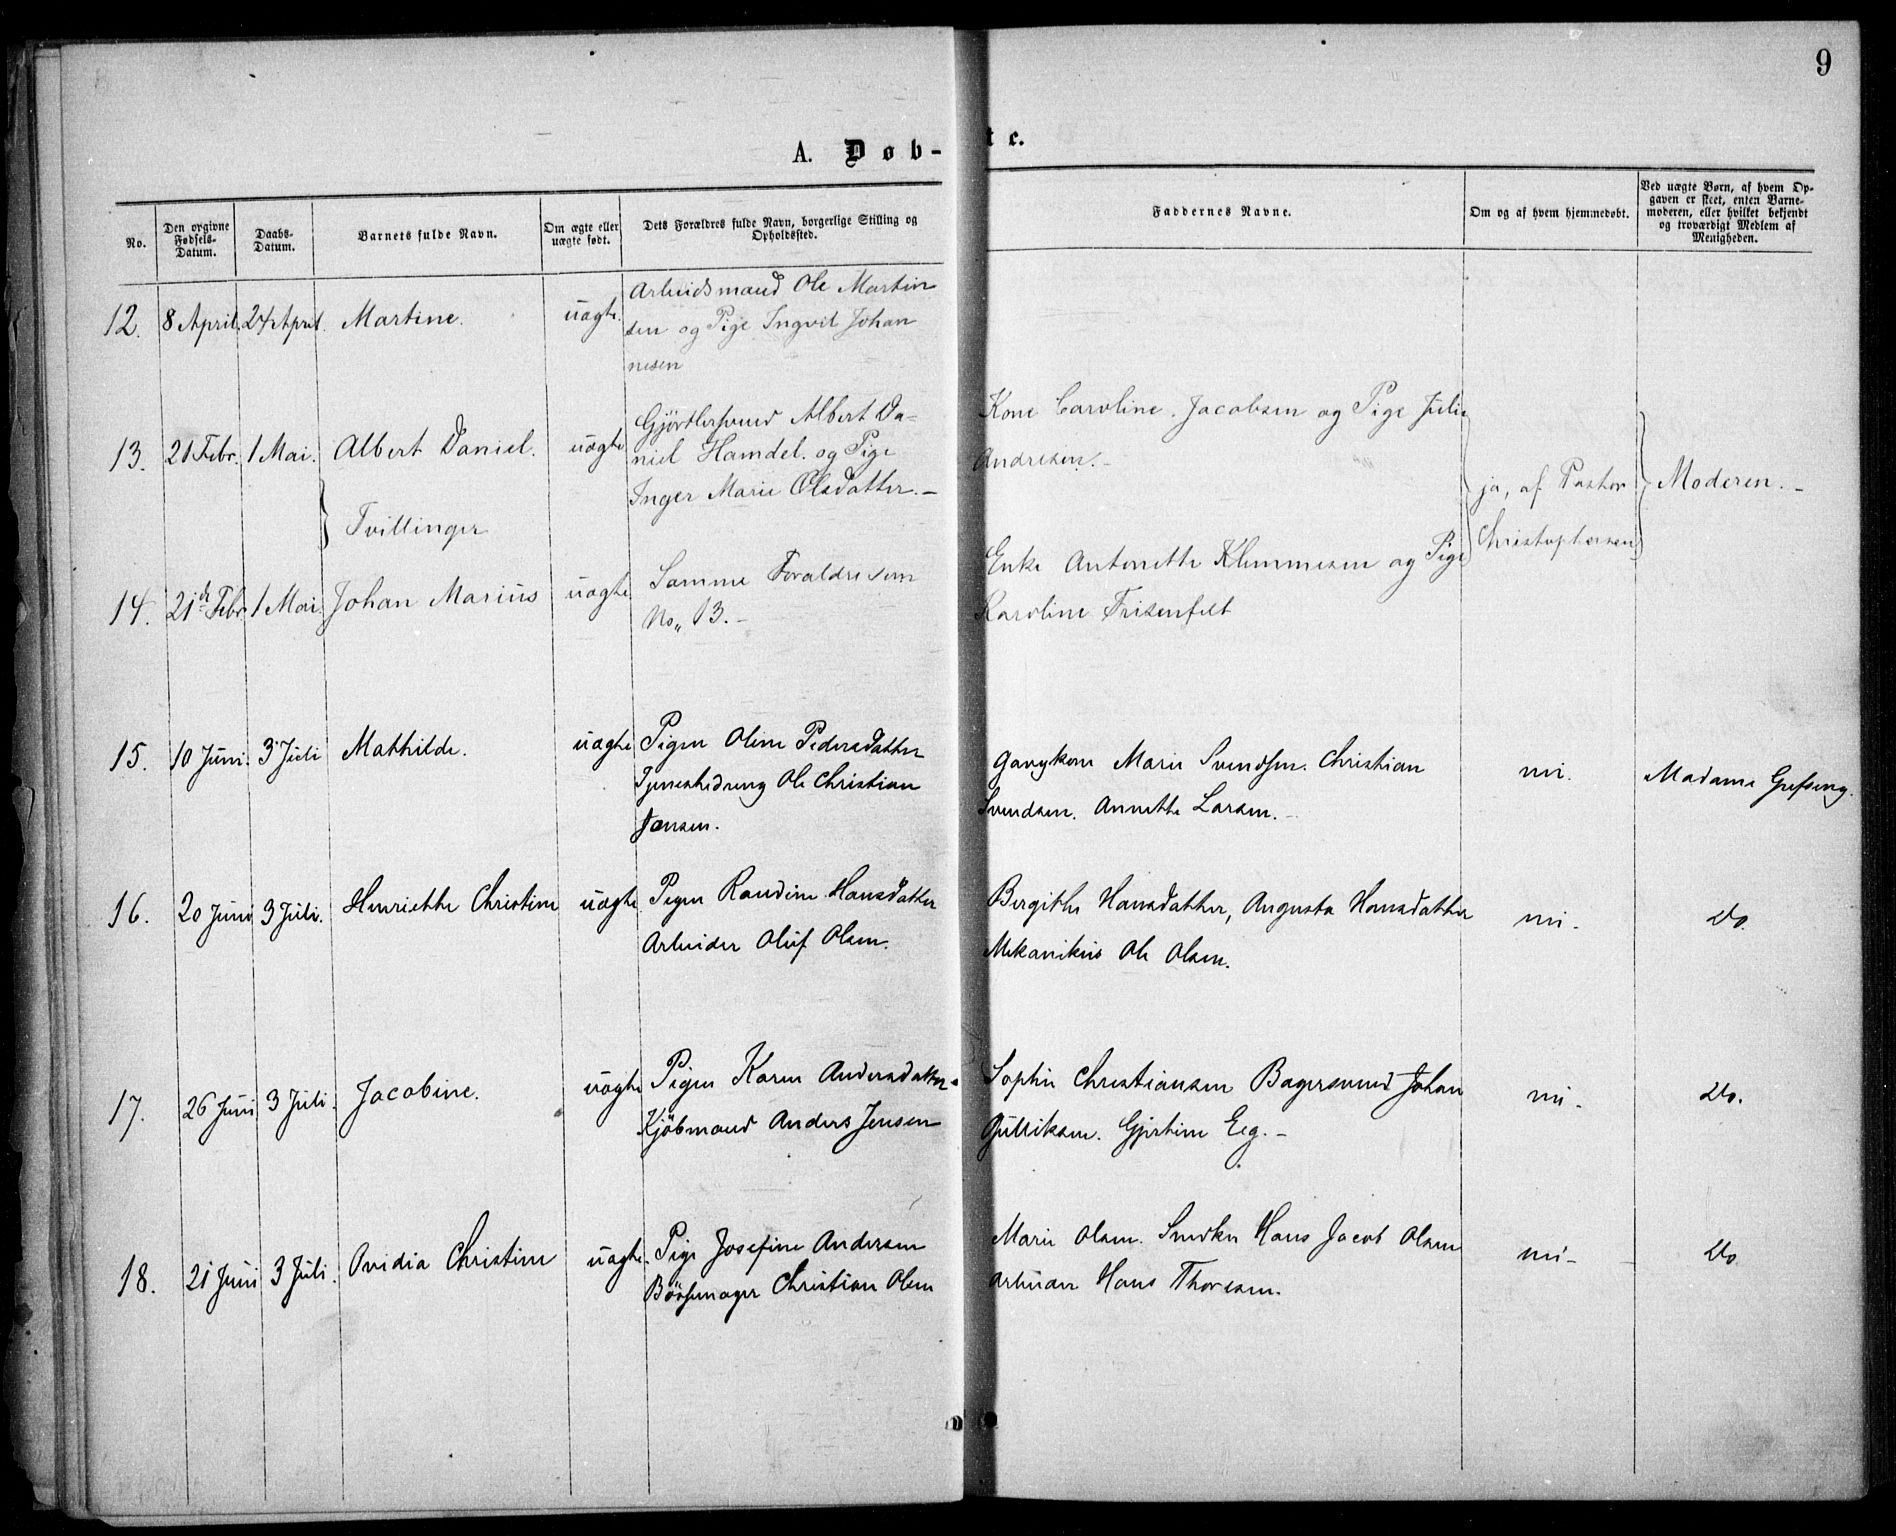 9
A. Døb-
te.
No.
Den opgivne Fødsels-Datum.
Daabs-Datum.
Barnets fulde Navn.
Om ægte eller uægte født.
Dets Forældres fulde Navn, borgerlige Stilling og Opholdssted.
Faddernes Navne.
Om og af hvem hjemmedøbt.
Ved uægte Børn, af hvem Opgaven er skeet, enten Barnemoderen, eller hvilket bekjendt og troværdigt Medlem af Menigheden.
12. 8 April. 24 April. Martine. uægte. Arbeidsmand Ole Martin
sen og Pige Ingvil Johan
nesen
13. 21 Febr. 1 Mai. Albert Daniel. uægte Gjörtlersvend Albert Da-
niel Hamdel. og Pige
Inger Marie Olsdatter. –
Kone Caroline Jacobsen og Pige Julie
Andresen. –
Tvillinger
ja, af Pastor
Christophersen
Moderen. –
14. 21de Febr 1 Mai Johan Marius uægte Samme Forældre som
No„ 13. –
Enke Antonette Klemmesen og Pige
Karoline Frisenfelt
15. 10 Juni. 3 Juli Mathilde. uægte Pigen Oline Pedersdatter
Tjenestedreng Ole Christian
Jansen.
Gangkone Marie Svendsen. Christian
Svendsen. Annette Larsen. –
nei.
Madame
16. 20 Juni 3 Juli. Henriette Christine uægte Pigen Randine Hansdatter
Arbeider Oluf Olsen.
Birgithe Hansdatter, Augusta Hansdatter
Mekanikus Ole Olsen.
nei –
Do.
17. 26 Juni 3 Juli. Jacobine. uægte Pigen Karen Andersdatter
Kjöbmand Anders Jensen
Sophie Christiansen Bagersvend Johan
Gulliksen. Gjertine Eeg. –
nei –
Do.
18. 21 Juni 3 Juli. Ovidia Christine uægte. Pige Josefine Andersen
Bössemager Christian Olsen
Marie Olsen. Snedker Hans Jacob Olsen
Arbeider Hans Thoresen.
nei –
Do.